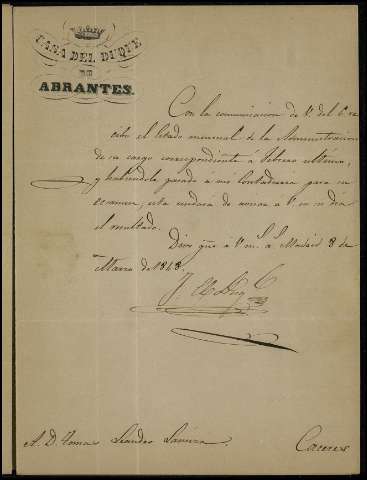 CASA DEL DUQUE
DE
ABRANTES.
Con la comunicacion de V. del 6 re
cibo el Estado mensual de la Administracion
de su cargo correspondiente á Febrero ultimo,
y habiendolo pasado á mi Contaduria para su
examen, esta cuidará de avisar a V. en su dia
el resultado.
Dios gue á V. m. a. Madrid 8 de
Marzo de 1848.
A. D. Tomas Leandro
Caceres